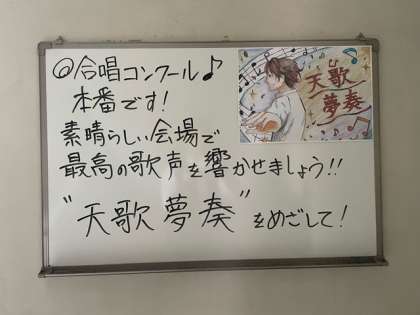 @合唱コンクール♪
本番です!
素晴らしい会場で
最高の歌声を響かせましょう!!
"天歌夢奏"をめざして!
天歌
夢奏